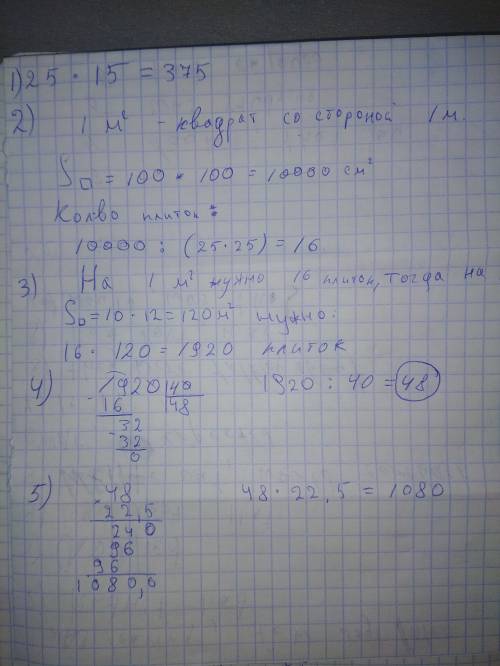 1) 25 · 15 = 375
2) 1 м² - квадрат со стороной 1 м.
S□ = 100 · 100 = 10000 см²
Колво плиток:
10000 : (25·25) = 16
3) На 1 м² нужно 16 плиток, тогда на
S□ = 10 · 12 = 120 м² нужно:
16 · 120 = 1920 плиток
4) 1920 | 40 1920 : 40 = 48
- 16 | 48
32
- 32
0
5) · 48 48 · 22,5 = 1080
22,5
240
96
96
1080,0